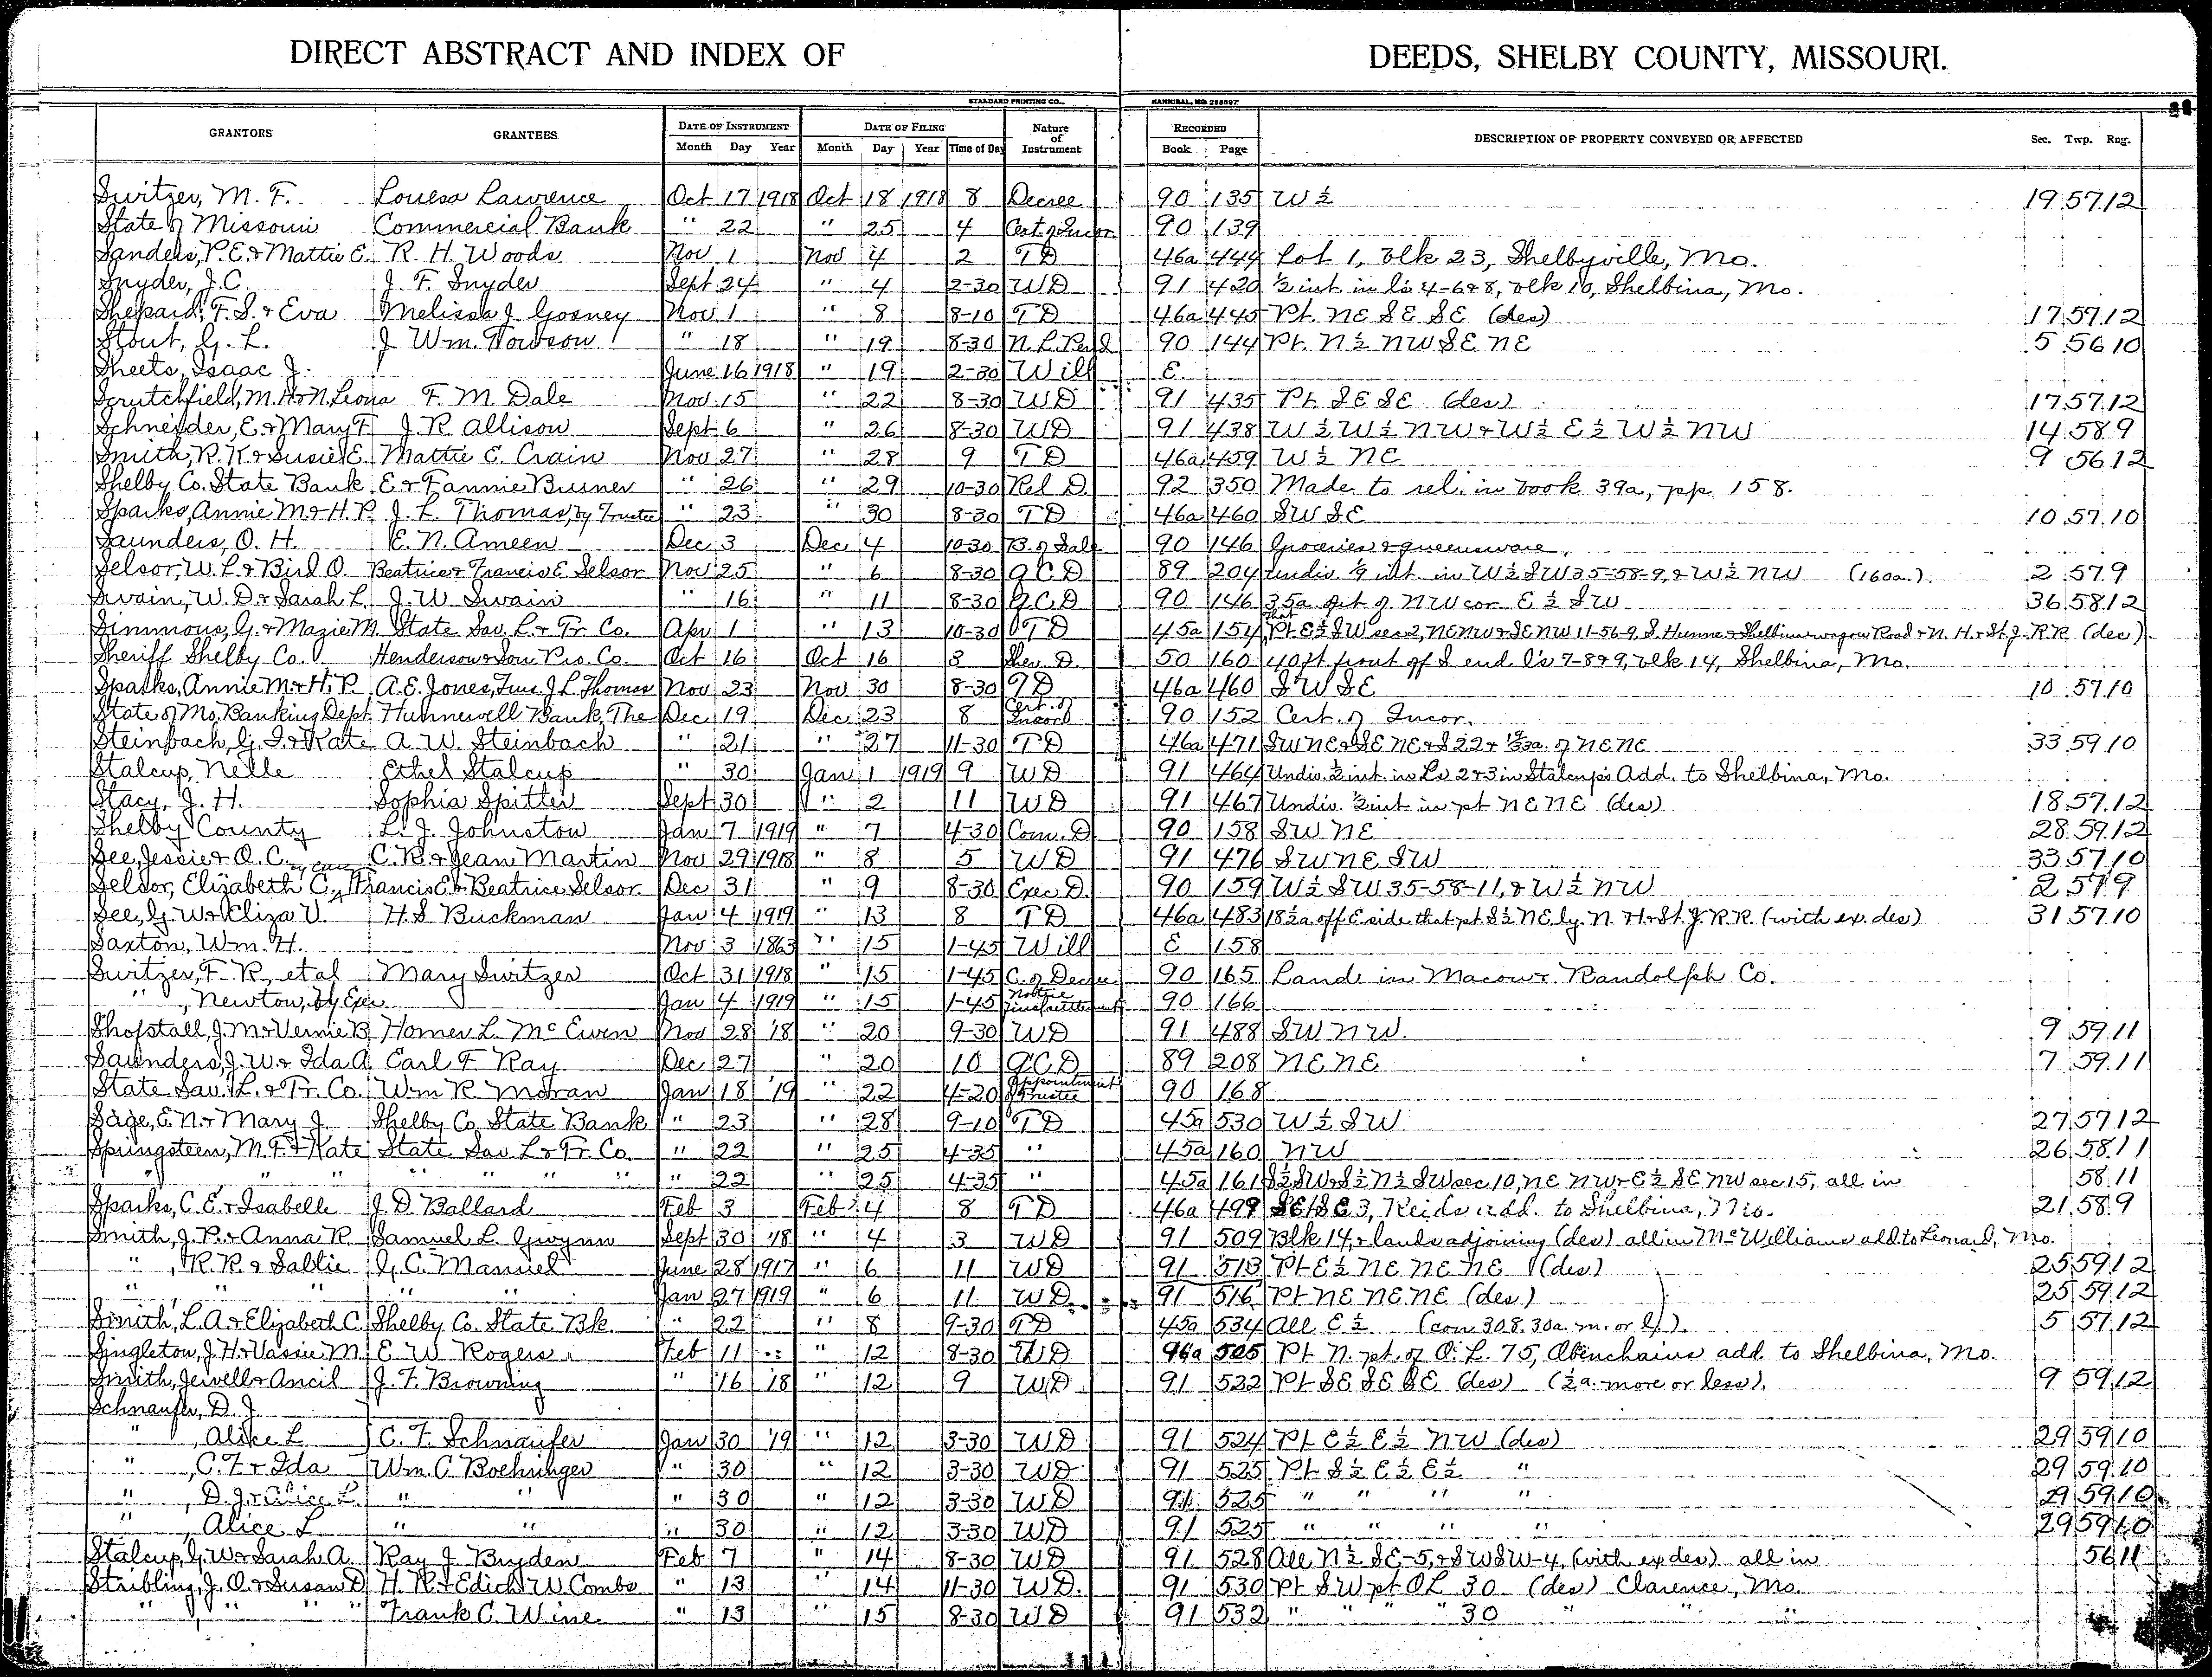 DIRECT ABSTRACT AND INDEX OF DEEDS, SHELBY COUNTY, MISSOURI.
STANDARD PRINTING CO., HANNIBAL, MO 288697
GRANTORS GRANTEES DATE OF INSTRUMENT DATE OF FILING Nature of Instrument RECORDED DESCRIPTION OF PROPERTY CONVEYED OR AFFECTED Sec. Twp. Rng.
Month Day Year Month Day Year Time of Day Book Page
Switzer, M. F. Louesa Lawrence Oct 17 1918 Oct 18 1918 8 Decree 90 135 W ½ 19 57 12
State of Missouri Commercial Bank " 22 " 25 4 Cert. of Incor. 90 139
Sanders, P. E. & Mattie E. R. H. Woods Nov 1 Nov 4 2 T D 46a 444 Lot 1, blk 23, Shelbyville, Mo.
Snyder, J. C. J. F. Snyder Sept 24 " 4 2-30 W D 91 420 ½ int. in ls 4-6&8, blk 10, Shelbina, Mo.
Shepard, F. S. & Eva Melissa J. Gosney Nov 1 " 8 8-10 T D 46a 445 Pt. NE SE SE (des) 17 57 12
Stout, G. L. J. Wm. Towson " 18 " 19 8-30 90 144 Pt. N ½ NW SE NE 5 56 10
Sheets, Isaac J. June 16 1918 " 19 2-30 Will E.
Scrutchfield, M. H. & N. Leona F. M. Dale Nov 15 " 22 8-30 W D 91 435 Pt. SE SE (des) 17 57 12
Schneider, E. & Mary F. J. R. Allison Sept 6 " 26 8-30 W D 91 438 W ½ W ½ NW & W ½ E ½ W ½ NW 14 58 9
Smith, R. K. & Susie E. Mattie C. Crain Nov 27 " 28 9 T D 46a 459 W ½ NE 9 56 12
Shelby Co. State Bank E. & Fannie Burner " 26 " 29 10-30 Rel D. 92 350 Made to rel. in book 39a, pp. 158.
Sparks, Annie M. & H. P. J. L. Thomas, by Trustee " 23 " 30 8-30 T D 46a 460 SW SE 10 57 10
Saunders, O. H. E. N. Ameen Dec 3 Dec 4 10-30 B. of Sale 90 146 Groceries & queensware.
Selsor, W. L. & Bird O. Beatrice & Francis E. Selsor Nov 25 " 6 8-30 Q C D 89 204 Undiv. 1/9 int. in W½ SW 35-58-9, & W½ NW (160a.) 2 57 9
Swain, W. D. & Sarah L. J. W. Swain " 16 " 11 8-30 Q C D 90 146 35a NW cor E ½ SW 36 58 12
Simmons, G. & Mazie M. State Sav. L. & Tr. Co. Apr 1 " 13 10-30 T D 45a 154 that Pt E½ SW sec 2, NENW & SE NW 11-56-9, S. Hunne. & Shelbina wagon Road & N. H. & St. J. R.R. (des)
Sheriff Shelby Co. Henderson & Son Pro. Co. Oct 16 Oct 16 3 Sher. D. 50 160 40 ft front off S end l's 7-8&9, blk 14, Shelbina, Mo.
Sparks, Annie M. & H. P. A. E. Jones, Trus. J. L. Thomas Nov 23 Nov 30 8-30 T D 46a 460 SW SE 10 57 10
State of Mo. Banking Dept. Hunnewell Bank, The Dec 19 Dec 23 8 Cert. of Incorp 90 152 Cert. of Incor.
Steinbach, G. I. & Kate A. W. Steinbach " 21 " 27 11-30 T D 46a 471 SW NE & SE NE & S 22 & of NE NE 33 59 10
Stalcup, Nelle Ethel Stalcup " 30 Jan 1 1919 9 W D 91 464 Undiv. ½ int. in Ls 2&3 in Stalcup's Add. to Shelbina, Mo.
Stacy, J. H. Sophia Spitter Sept 30 " 2 11 W D 91 467 Undiv. ½ int in pt NE NE (des) 18 57 12
Shelby County L. J. Johnston Jan 7 1919 " 7 4-30 Com. D. 90 158 SW NE 28 59 12
See, Jessie & O. C. C. R. & Jean Martin Nov 29 1918 " 8 5 W D 91 476 SW NE SW 33 57 10
Selsor, Elizabeth C., by Exec Francis E. & Beatrice Selsor Dec 31 " 9 8-30 Exec D. 90 159 W½ SW 35-58-11, & W ½ NW 2 57 9
See, G. W. & Eliza V. H. S. Buckman Jan 4 1919 " 13 8 T D 46a 483 18½a off E side that pt S½ NE ly. N. H. & St. J. R.R. (with ex. des) 31 57 10
Saxton, Wm. H. Nov 3 1863 " 15 1-45 Will E 158
Switzer, F. R, et al Mary Switzer Oct 31 1918 " 15 1-45 C. of Decree 90 165 Land in Macon & Randolph Co.
" , Newton, by Exec. Jan 4 1919 " 15 1-45 Notice final settlement 90 166
Shofstall, J. M. & Vernie B Homer L. McEwen Nov 28 '18 " 20 9-30 W D 91 488 SW NW. 9 59 11
Saunders, J. W. & Ida A Carl F. Ray Dec 27 " 20 10 Q C D 89 208 NE NE 7 59 11
State Sav. L. & Tr. Co. Wm R. Moran Jan 18 '19 " 22 4-20 Appointment of Trustee 90 168
Sage, E. N. & Mary J. Shelby Co. State Bank " 23 " 28 9-10 T D 45a 530 W ½ SW 27 57 12
Springsteen, M. F. & Kate State Sav L. & Tr. Co. " 22 " 25 4-35 " 45a 160 NW 26 58 11
" " " " " " " " 22 " 25 4-35 " 45a 161 S½ SW & S½ N½ SW sec 10, NE NW & E ½ SE NW sec 15, all in 58 11
Sparks, C. E. & Isabelle J. D. Ballard Feb 3 Feb 4 8 T D 46a 499 3, Reids add. to Shelbina, Mo. 21 58 9
Smith, J. P. & Anna R. Samuel L. Gwynn Sept 30 '18 " 4 3 W D 91 509 Blk 14, & lands adjoining (des) all in McWilliams add. to Leonard, Mo.
" , R. R. & Sallie G. C. Manuel June 28 1917 " 6 11 W D 91 513 Pt E ½ NE NE NE (des) 25 59 12
" " " " " Jan 27 1919 " 6 11 W D 91 516 Pt NE NE NE (des) 25 59 12
Smith, L. A. & Elizabeth C. Shelby Co. State Bk. " 22 " 8 9-30 T D 45a 534 All E ½ (con 308.30a. m. or l.). 5 57 12
Singleton, J. H. & Vassie M. E. W. Rogers Feb 11 " 12 8-30 96a 505 Pt N. pt. of O. L. 75, Obenchains add to Shelbina, Mo.
Smith, Jewell & Ancil J. F. Browning " 16 '18 " 12 9 W D 91 522 Pt SE SE SE (des) (½a. more or less). 9 59 12
Schnaufer, D. J.
" , Alice L C. F. Schnaufer Jan 30 '19 " 12 3-30 W D 91 524 Pt E ½ E ½ NW (des) 29 59 10
" , C. F. & Ida Wm. C. Boehringer " 30 " 12 3-30 W D 91 525 Pt S ½ E ½ E ½ " 29 59 10
" , D. J. & Alice L. " " " 30 " 12 3-30 W D 91 525 " " " " 29 59 10
" , Alice L " " " 30 " 12 3-30 W D 91 525 " " " " 29 59 10
Stalcup, G. W. & Sarah A. Ray J. Bryden Feb 7 " 14 8-30 W D 91 528 All N ½ SE-5, & SW SW-4, (with ex des) all in 56 11
Stribling, J. O. & Susan D H. R. & Edith W. Combs " 13 " 14 11-30 W D. 91 530 Pt SW pt OL 30 (des) Clarence, Mo.
" " " " Frank C. Wine " 13 " 15 8-30 W D 91 532 " " " " 30 " " "